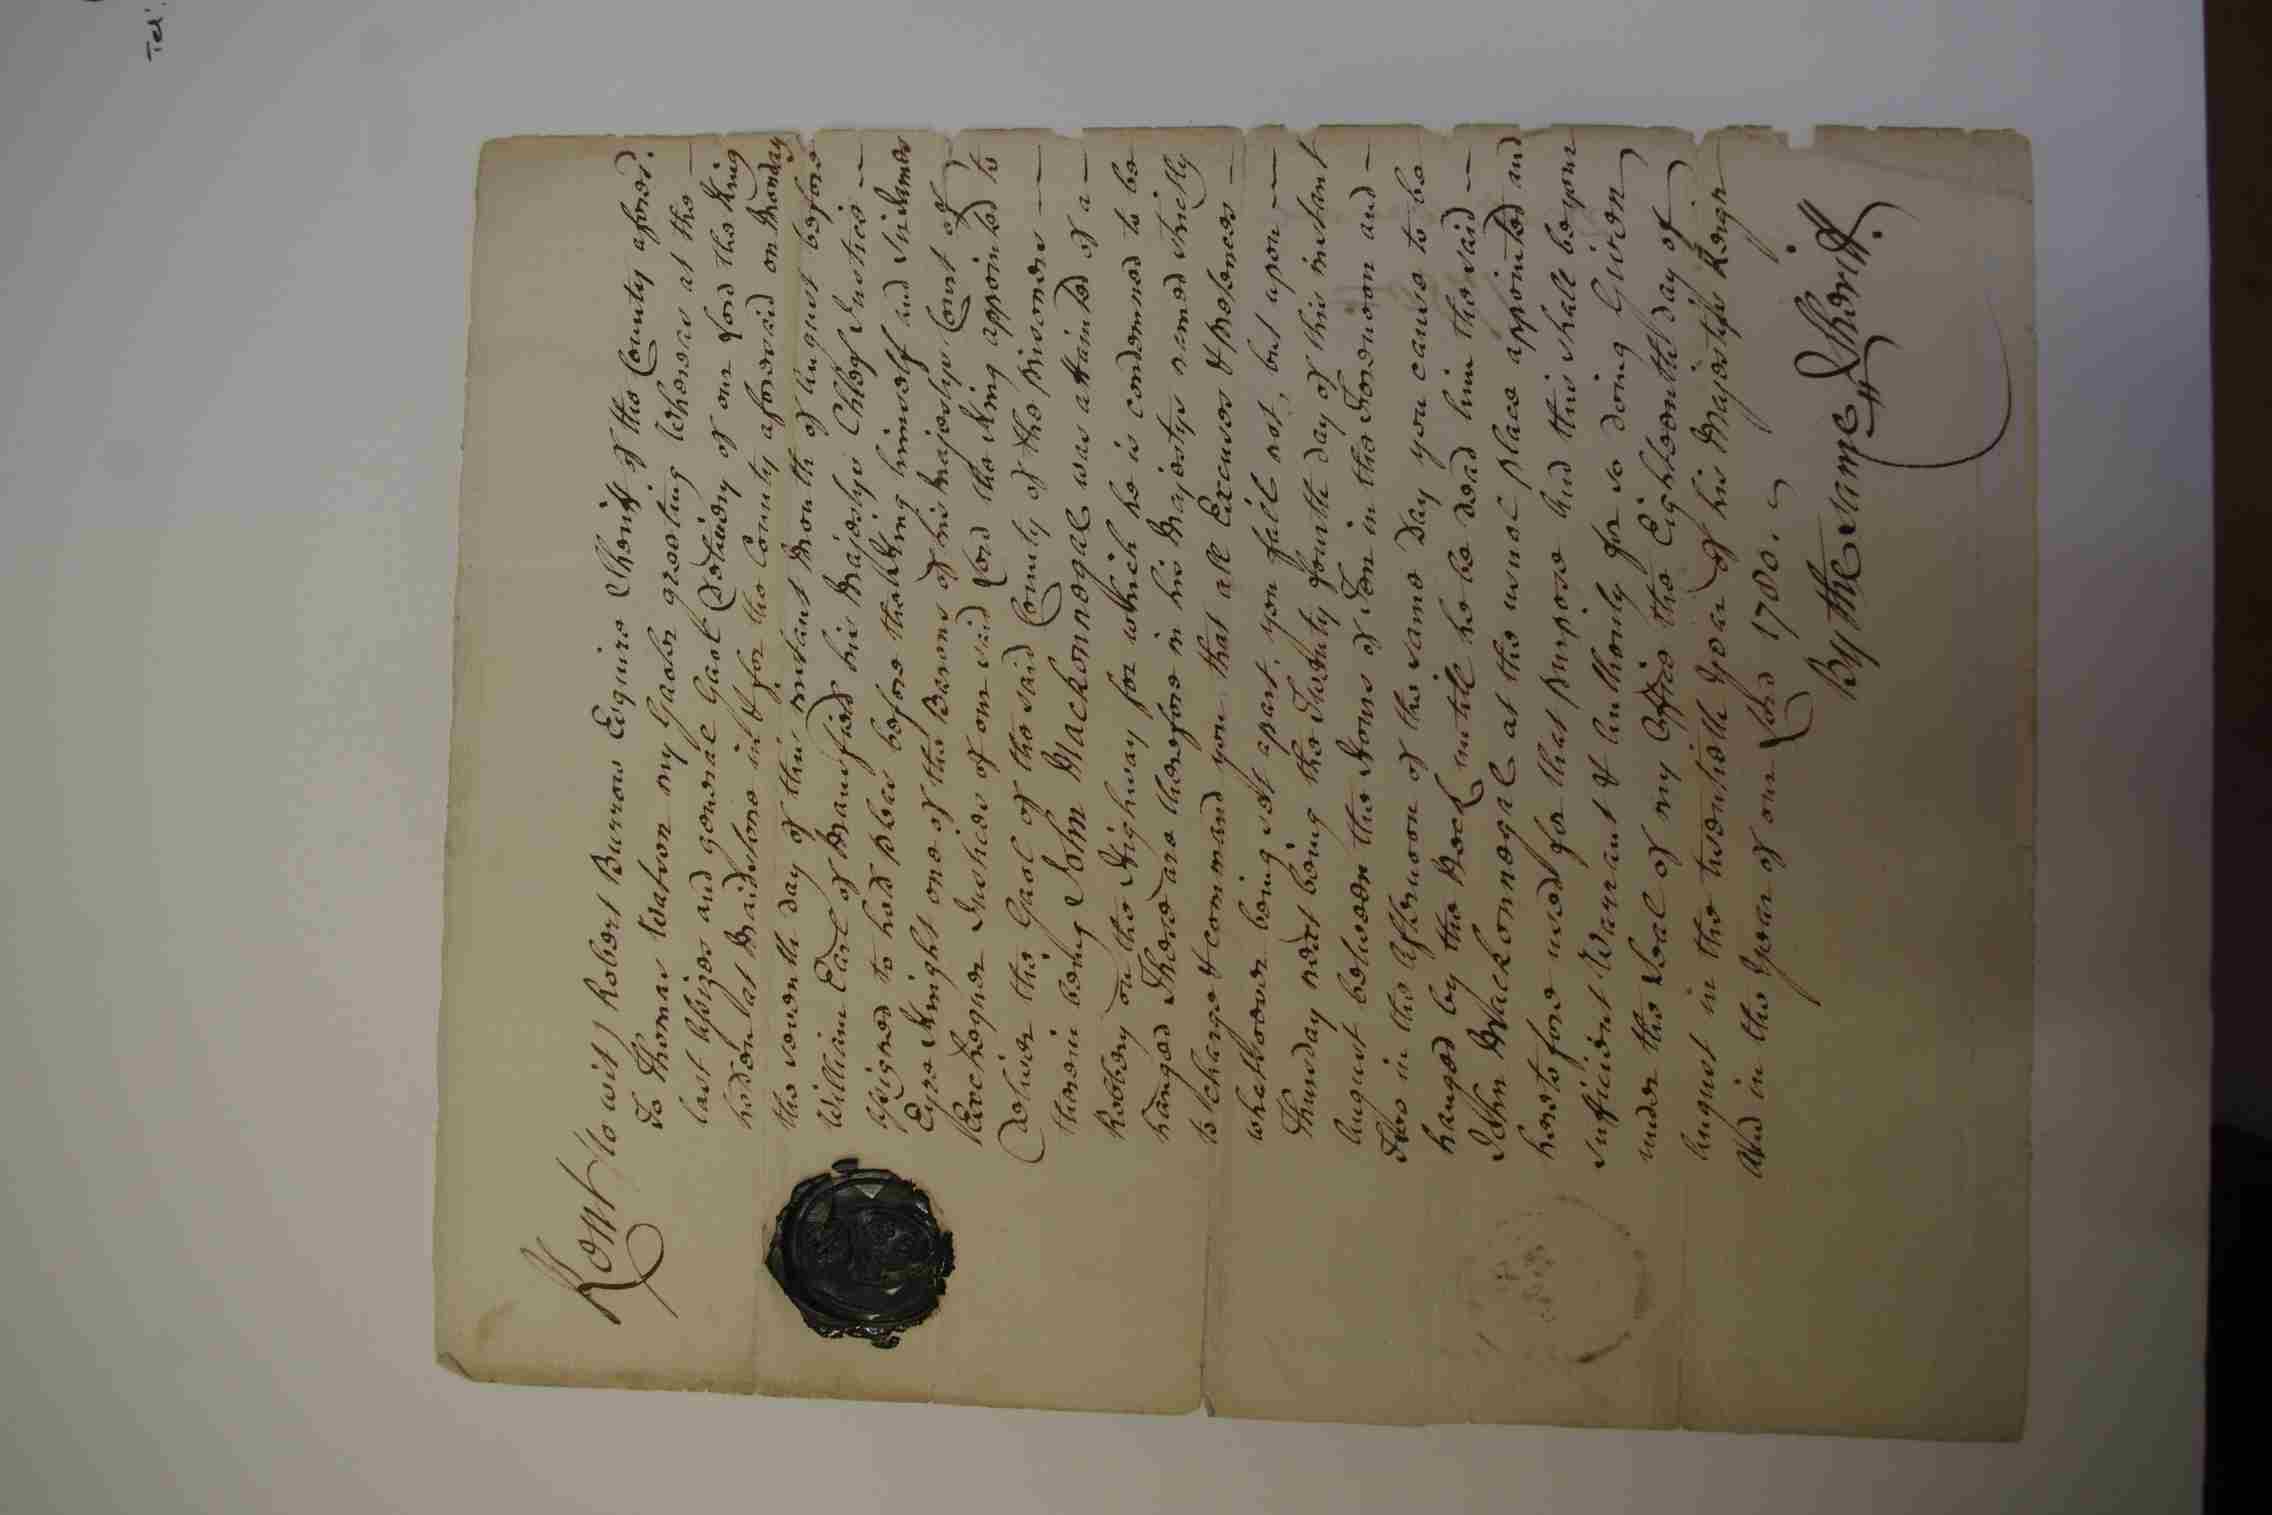 Kent to wit) Robert Burrow Esquire Sheriff of the County afores.d
To Thomas Watson my Gaoler greeting Whereas at the —
last Assizes and general Gaol Delivery of our Lord the King
holden at Maidstone in & for the County aforesaid on Monday
the seventh day of this instant Month of August before
William Earl of Mansfield his Majestys Chief Justice —
assigned to hold pleas before the King himself and Sir James
Eyre Knight one of the Barons of his Majestys Court of
Exchequer Justices of our said Lord the King appointed to
Deliver the Gaol of the said County of the prisoners —
therein being John Mackonnogal was attainted of a —
Robbery on the Highway for which he is condemned to be
hanged These are therefore in his Majestys name strictly
to charge & command you that all Excuses & pretences —
whatsoever being set apart, you fail not, but upon —
Thursday next being the Twenty fourth day of this instant
August between the Hours of Ten in the Forenoon and —
Two in the Afternoon of the same Day you cause to be
hanged by the Neck until he be dead him the said —
John Mackonnogal at the usual place appointed and
heretofore used for that purpose And this shall be your
sufficient Warrant & Authority for so doing Given
under the Seal of my Office the Eighteenth day of
August in the twentieth Year of his Majestys Reign
And in the Year of our Lord 1780.
By the same Sheriff.
Tel: